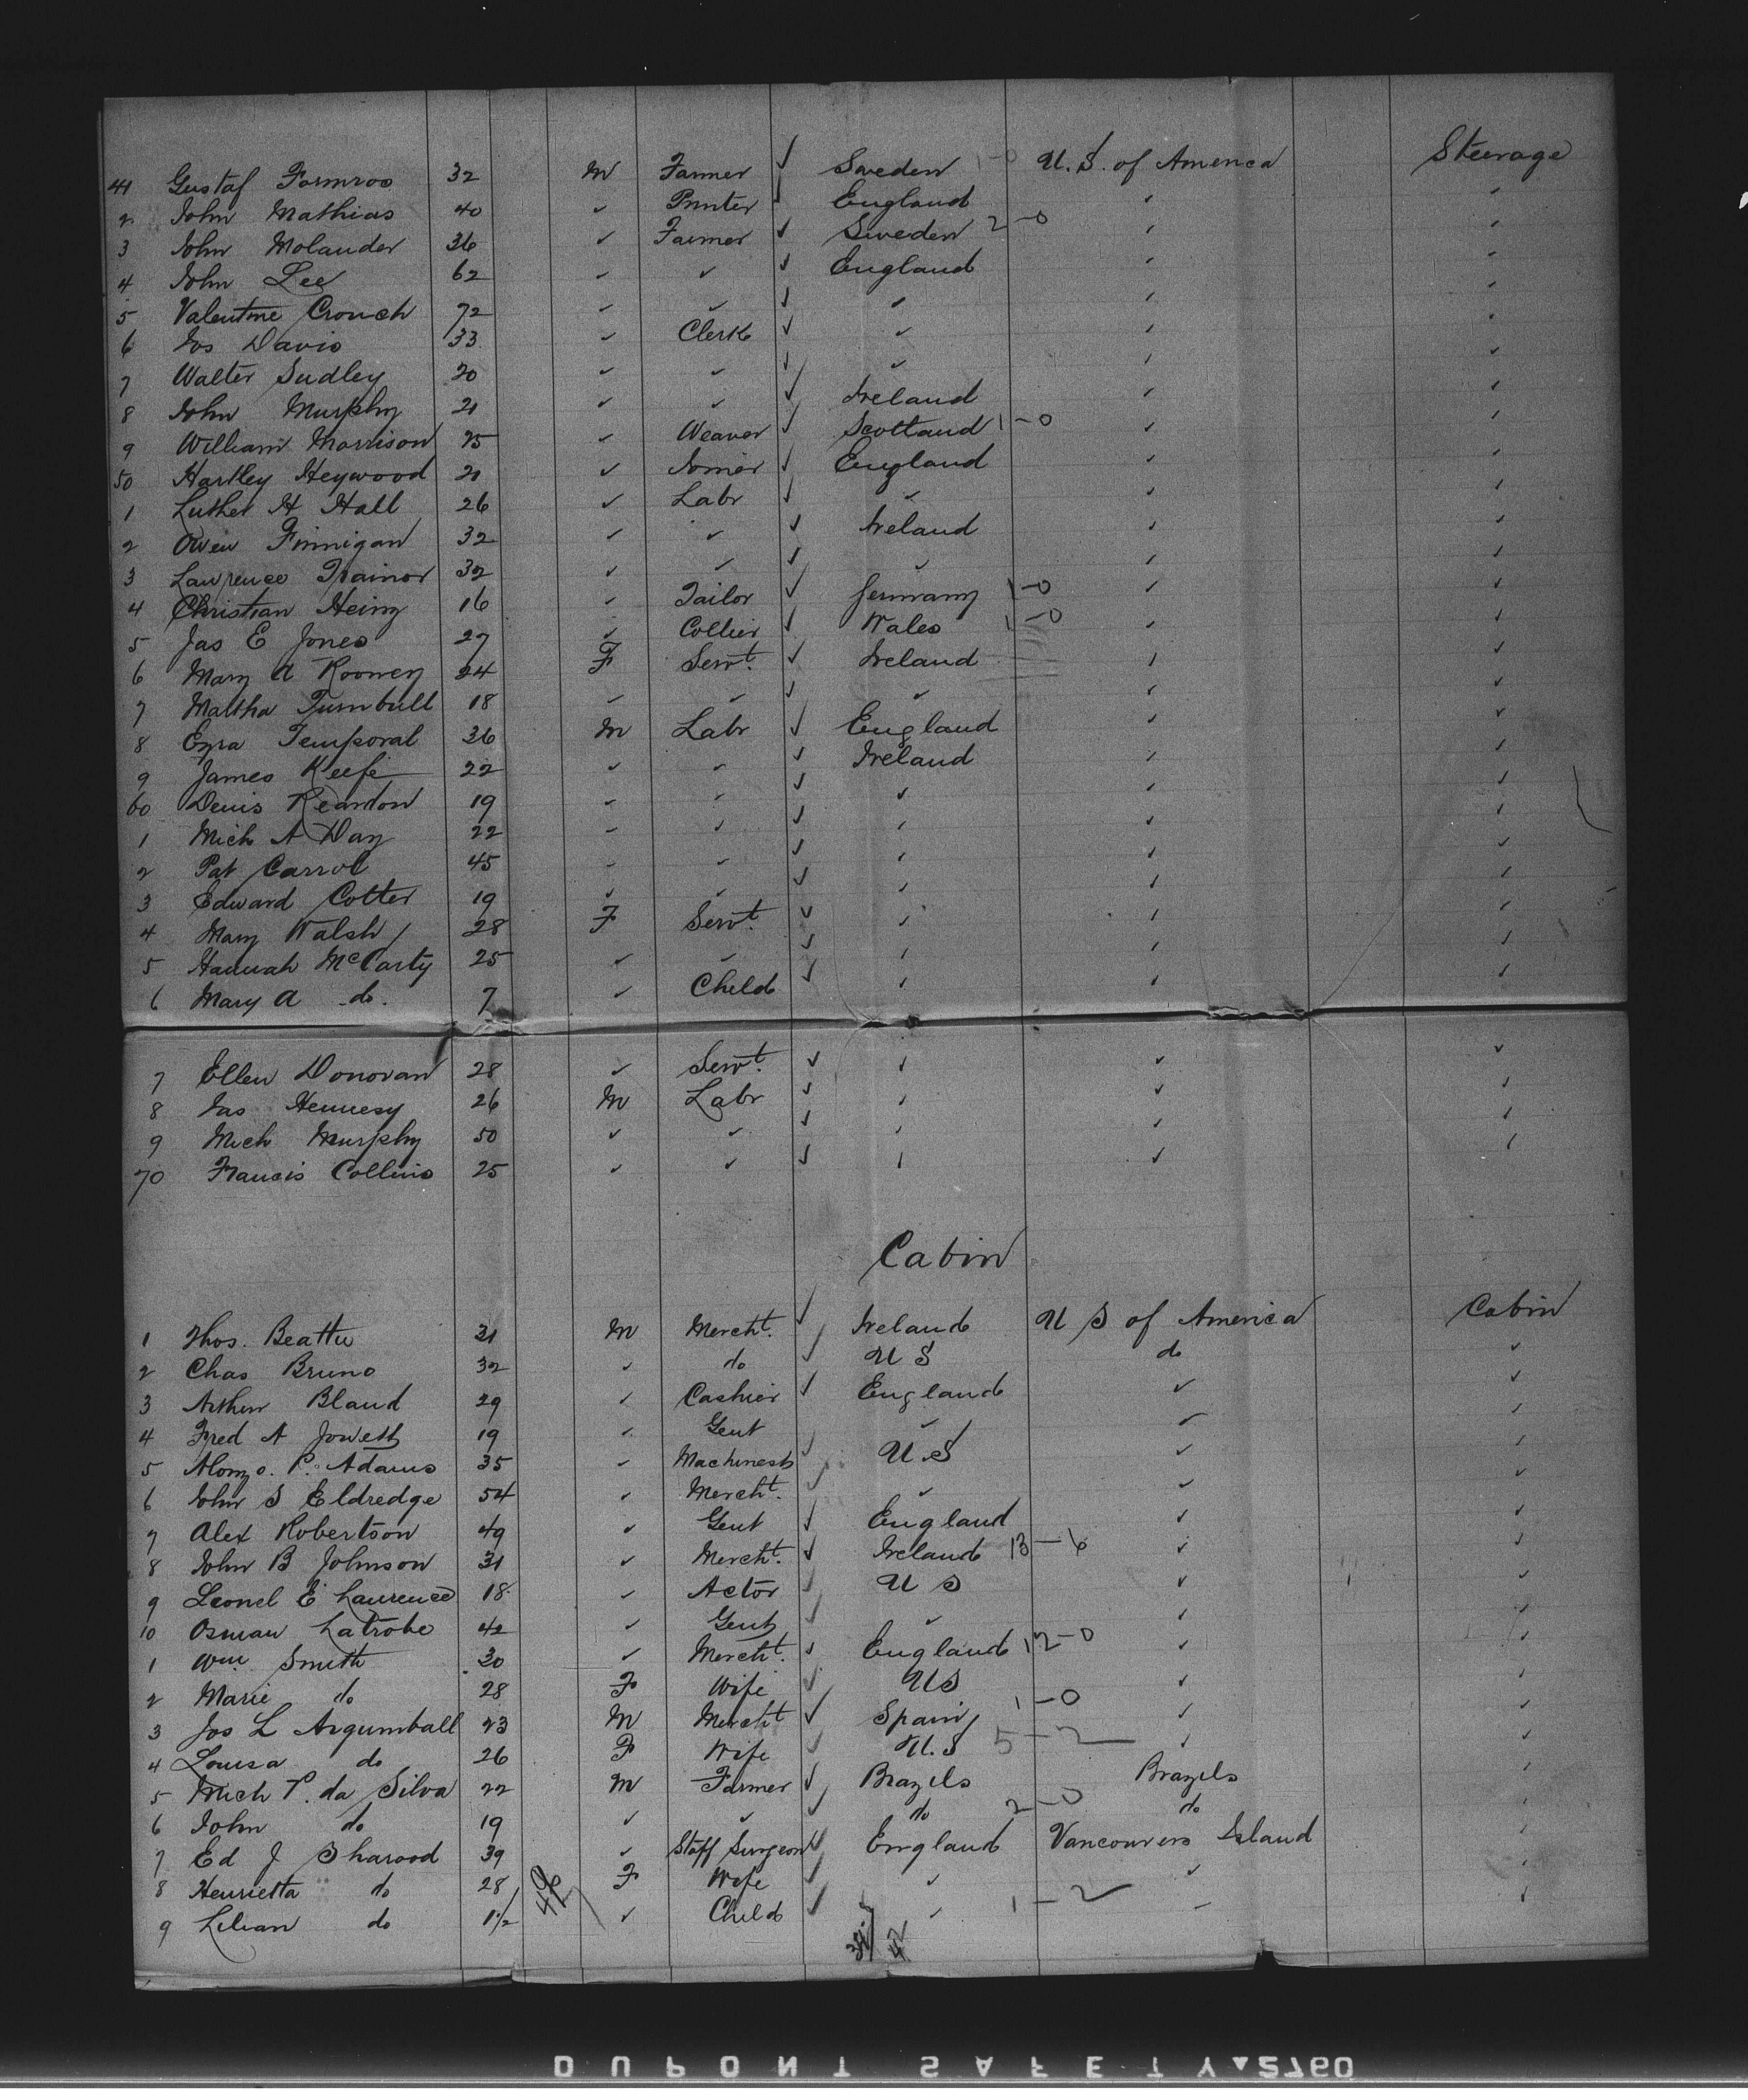 41 Gustaf Formroo 32 M Farmer ✓ Sweden 1-0 U.S. of America Steerage
2 John Mathias 40 ✓ Printer ✓ England ✓ ✓
3 John Molander 36 ✓ Farmer ✓ Sweden 2-0 ✓ ✓
4 John Lee 62 ✓ ✓ ✓ England ✓ ✓
5 Valentine Crouch 72 ✓ ✓ ✓ ✓ ✓ ✓
6 Jos Davis 33 ✓ Clerk ✓ ✓ ✓ ✓
7 Walter Sudley 20 ✓ ✓ ✓ ✓ ✓ ✓
8 John Murphy 21 ✓ ✓ ✓ Ireland ✓ ✓
9 William Morrison 25 ✓ Weaver ✓ Scotland 1-0 ✓ ✓
50 Hartley Heywood 21 ✓ Joiner ✓ England ✓ ✓
1 Luther H Hall 26 ✓ Labr ✓ ✓ ✓ ✓
2 Owen Finnigan 32 ✓ ✓ ✓ Ireland ✓ ✓
3 Lawrence Trainor 32 ✓ ✓ ✓ ✓ ✓ ✓
4 Christian Heinz 16 ✓ Tailor ✓ Germany 1-0 ✓ ✓
5 Jas E Jones 27 ✓ Collier ✓ Wales 1-0 ✓ ✓
6 Mary A Rooney 24 F Servt. ✓ Ireland ✓ ✓
7 Martha Turnbull 18 ✓ ✓ ✓ ✓ ✓ ✓
8 Ezra Temporal 36 M Labr ✓ England ✓ ✓
9 James Keefe 22 ✓ ✓ ✓ Ireland ✓ ✓
60 Denis Reardon 19 ✓ ✓ ✓ ✓ ✓ ✓
1 Mich A Day 22 ✓ ✓ ✓ ✓ ✓ ✓
2 Pat Carrol 45 ✓ ✓ ✓ ✓ ✓ ✓
3 Edward Cotter 19 ✓ ✓ ✓ ✓ ✓ ✓
4 Mary Walsh 28 F Servt. ✓ ✓ ✓ ✓
5 Hannah McCarty 25 ✓ ✓ ✓ ✓ ✓ ✓
6 Mary A do. 7 ✓ Child ✓ ✓ ✓ ✓
7 Ellen Donovan 28 ✓ Servt. ✓ ✓ ✓ ✓
8 Jas Hennesy 26 M Labr ✓ ✓ ✓ ✓
9 Mich Murphy 50 ✓ ✓ ✓ ✓ ✓ ✓
70 Francis Collins 25 ✓ ✓ ✓ ✓ ✓ ✓
Cabin
1 Thos. Beattie 31 M Mercht. ✓ Ireland U S of America Cabin
2 Chas Bruno 32 ✓ do ✓ U S do ✓
3 Arthur Bland 29 ✓ Cashier ✓ England ✓ ✓
4 Fred A Jowett 19 ✓ Gent ✓ ✓ ✓
5 Alonzo. P. Adams 35 ✓ Machinest ✓ U.S ✓ ✓
6 John S Eldredge 54 ✓ Mercht. ✓ ✓ ✓ ✓
7 Alex Robertson 49 ✓ Gent ✓ England ✓ ✓
8 John B Johnson 31 ✓ Mercht. ✓ Ireland 13-6 ✓ ✓
9 Leonel E Laurence 18 ✓ Actor ✓ U S ✓ ✓
10 Osman Latrobe 42 ✓ Gent ✓ ✓ ✓ ✓
1 Wm. Smith 30 ✓ Mercht. ✓ England 12-0 ✓ ✓
2 Marie do 28 F Wife ✓ US ✓ ✓
3 Jos L Argumball 23 M Mercht ✓ Spain 1-0 ✓ ✓
4 Louisa do 26 F Wife ✓ U.S 5-2 ✓ ✓
5 Mich P. da Silva 22 M Farmer ✓ Brazils Brazils ✓
6 John do 19 ✓ ✓ ✓ do 2-0 do ✓
7 Ed J Sharood 39 ✓ Staff Surgeon ✓ England Vancouvers Island ✓
8 Henrietta do 28 F Wife ✓ ✓ ✓ ✓
9 Lilian do 1½ ✓ Child ✓ ✓ 1-2 ✓ ✓
DUPONT SAFETY 2760